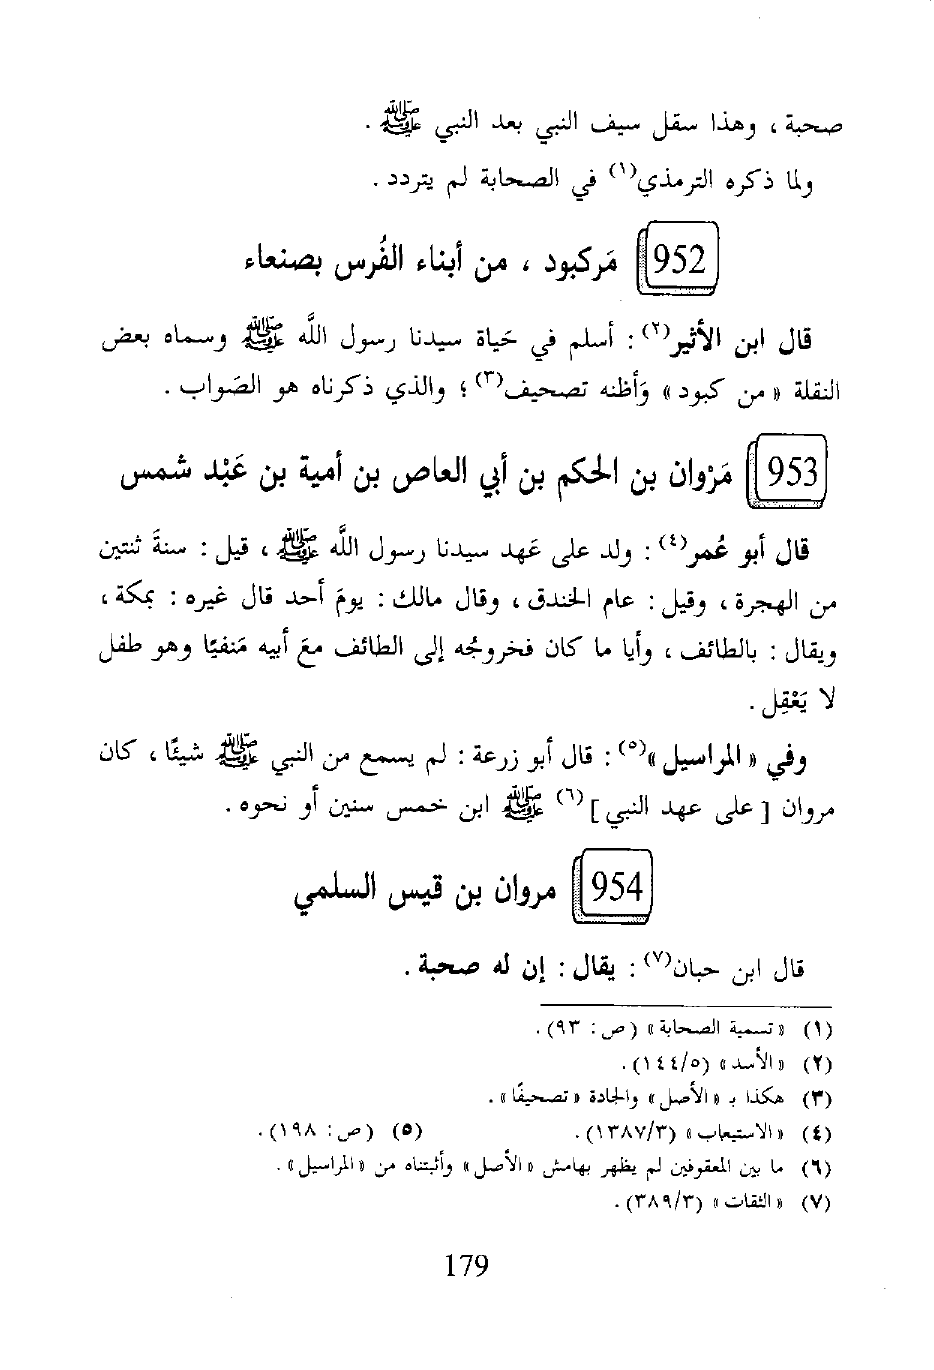 صحبة ، وهذا سقل سيف النبي بعد النبي ﷺ .
ولما ذكره الترمذي(١) في الصحابة لم يتردد .
952 مَركبود ، من أبناء الفُرس بصنعاء
قال ابن الأثير(٢) : أسلم في حَياة سيدنا رسول اللَّه ﷺ وسماه بعض
النقلة « من كبود » وَأظنه تصحيف(٣) ؛ والذي ذكرناه هو الصَواب .
953 مَرْوان بن الحكم بن أبي العاص بن أمية بن عَبْد شمس
قال أبو عُمر(٤) : ولد على عَهد سيدنا رسول اللَّه ﷺ ، قيل : سنةَ ثنتين
من الهجرة ، وقيل : عام الخندق ، وقال مالك : يومَ أحد قال غيره : بمكة ،
ويقال : بالطائف ، وأيا ما كان فخروجُه إلى الطائف معَ أبيه مَنفيًا وهو طفل
لا يَعْقِل .
وفي « المراسيل »(٥) : قال أبو زرعة : لم يسمع من النبي ﷺ شيئًا ، كان
مروان [ على عهد النبي ](٦) ﷺ ابن خمس سنين أو نحوه .
954 مروان بن قيس السلمي
قال ابن حبان(٧) : يقال : إن له صحبة .
(١) « تسمية الصحابة » (ص : ٩٣) .
(٢) « الأسد » (٥/١٤٤) .
(٣) هكذا بـ « الأصل » والجادة « تصحيفًا » .
(٤) « الاستيعاب » (٣/١٣٨٧) . (٥) (ص : ١٩٨) .
(٦) ما بين المعقوفين لم يظهر بهامش « الأصل » وأثبتناه من « المراسيل » .
(٧) « الثقات » (٣/٣٨٩) .
179